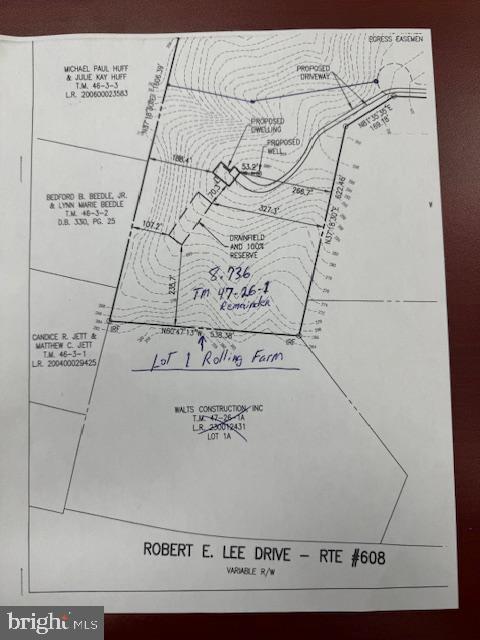 EGRESS EASEMEN
MICHAEL PAUL HUFF
& JULIE KAY HUFF
T.M. 46-3-3
L.R. 200600023583
PROPOSED
DRIVEWAY
N81°35'35"E
169.18'
PROPOSED
DWELLING
PROPOSED
WELL
188.4'
53.2'
70.3'
268.7'
622.46'
N37°18'30"E
327.3'
BEDFORD B. BEEDLE, JR.
& LYNN MARIE BEEDLE
T.M. 46-3-2
D.B. 330, PG. 25
107.2'
DRAINFIELD
AND 100%
RESERVE
235.7'
8.736
TM 47-26-1
Remainder
IRF
N60°47'13"W 538.38'
IRF
CANDICE R. JETT &
MATTHEW C. JETT
T.M. 46-3-1
L.R. 200400029425
Lot 1 Rolling Farm
WALTS CONSTRUCTION, INC
T.M. 47-26-1A
L.R. 230012431
LOT 1A
ROBERT E. LEE DRIVE - RTE #608
VARIABLE R/W
bright MLS